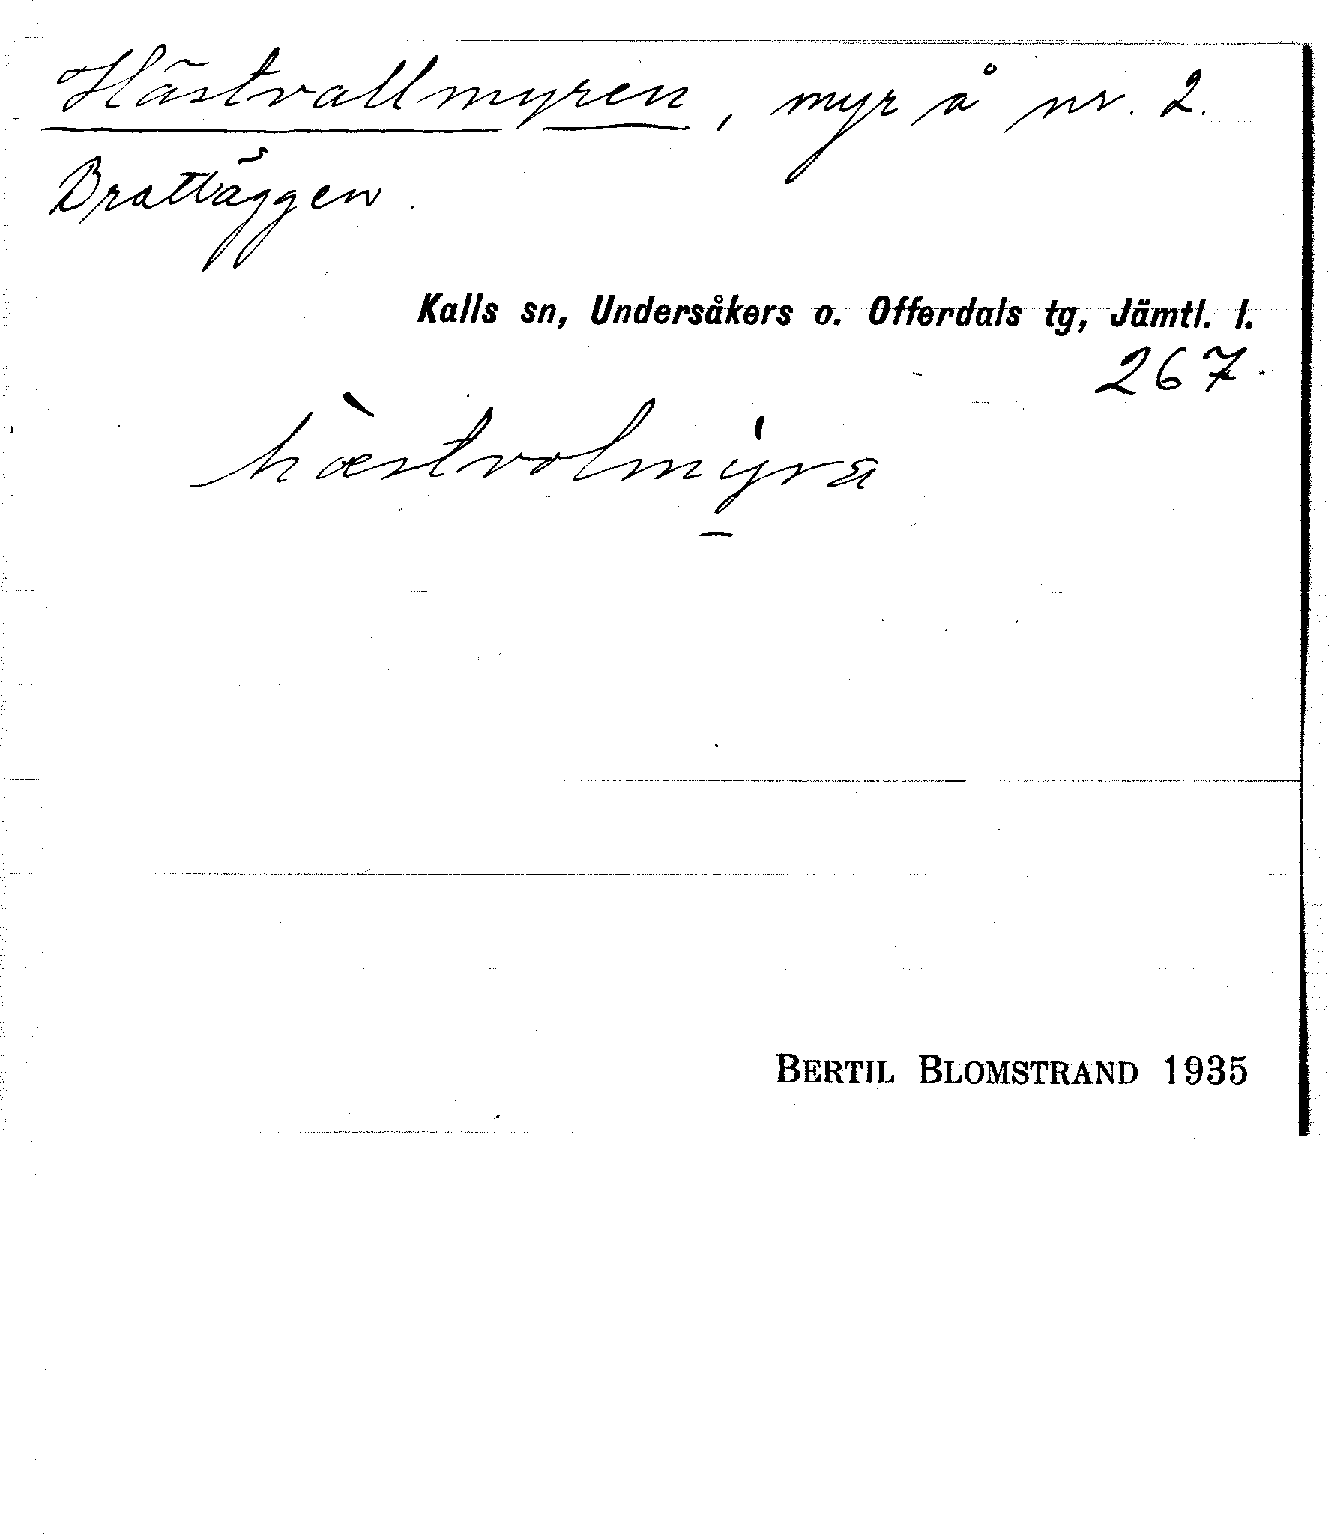 Hästvallmyren, myr å nr. 2.
Brattäggen.
Kalls sn, Undersåkers o. Offerdals tg, Jämtl. l.
267.
hæ̀stvolmy̱̍ra
BERTIL BLOMSTRAND 1935